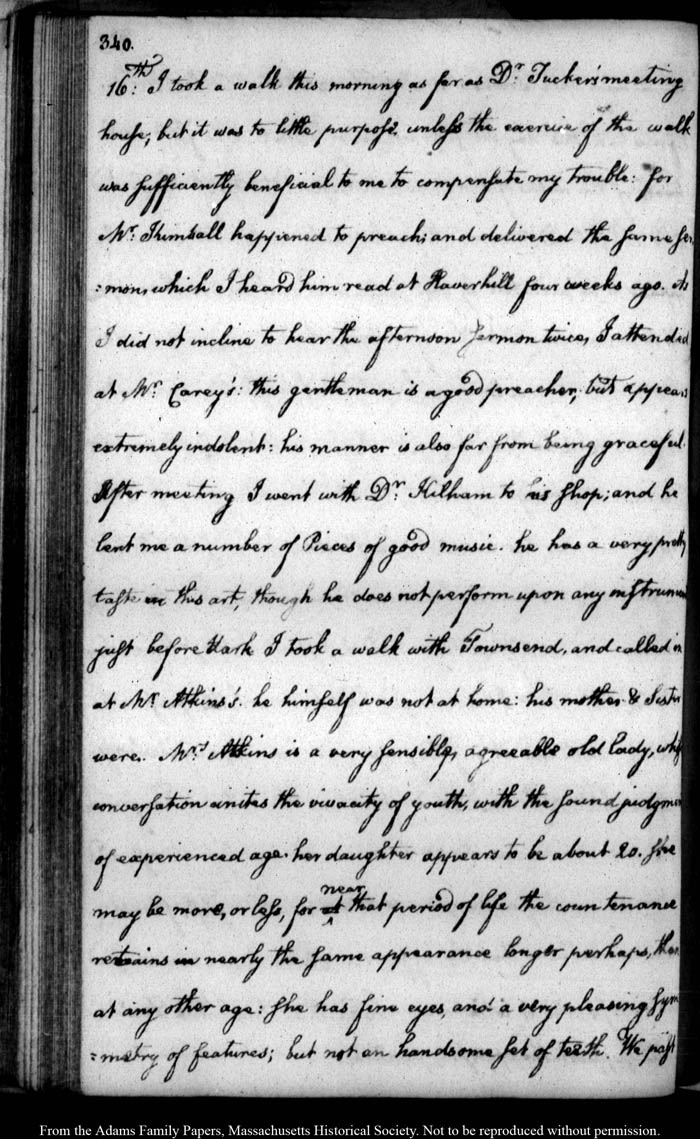 340.
16th: I took a walk this morning as far as Dr. Tucker's meeting
house; but it was to little purpose, unless the exercise of the walk
was sufficiently beneficial to me to compensate my trouble: for
Mr. Kimball happened to preach; and delivered the same ser
=mon, which I heard him read at Haverhill four weeks ago. As
I did not incline to hear the afternoon sermon twice, I attended
at Mr. Carey's: this gentleman is a good preacher; but appears
extremely indolent: his manner is also far from being graceful.
After meeting I went with Dr. Kilham to his shop; and he
lent me a number of Pieces of good music. he has a very pretty
taste in this art, though he does not perform upon any instrum
just before dark I took a walk with Townsend, and called in
at Mr. Atkins's. he himself was not at home: his mother & Sister
were. Mrs. Atkins is a very sensible, agreeable old lady, whose
conversation unites the vivacity of youth, with the sound judgmen
of experienced age. her daughter appears to be about 20. she
may be more, or less, for near that period of life the countenance
retains in nearly the same appearance longer perhaps, than
at any other age: she has fine eyes, and a very pleasing sym
=metry of features; but not an handsome set of teeth. We past
From the Adams Family Papers, Massachusetts Historical Society. Not to be reproduced without permission.